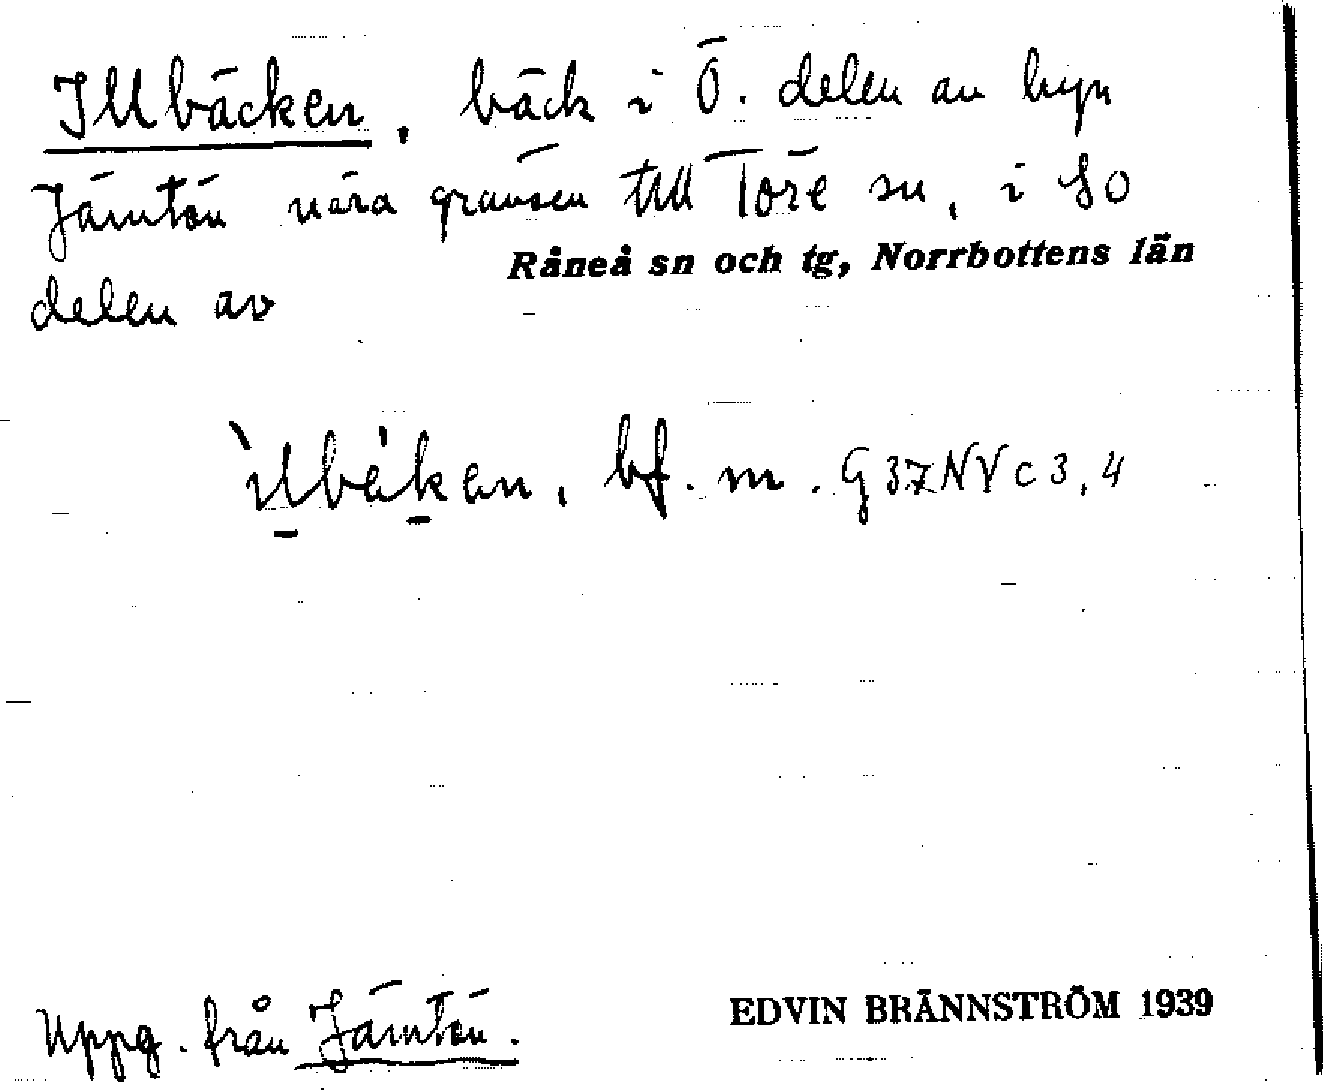 Illbäcken, bäck i Ö. delen av byn
Jämtön nära gränsen till Töre sn, i SO
delen av Råneå sn och tg, Norrbottens län
`ilbè'kan, bf. m. G37NVc3,4
Uppg. från Jämtön.
EDVIN BRÄNNSTRÖM 1939